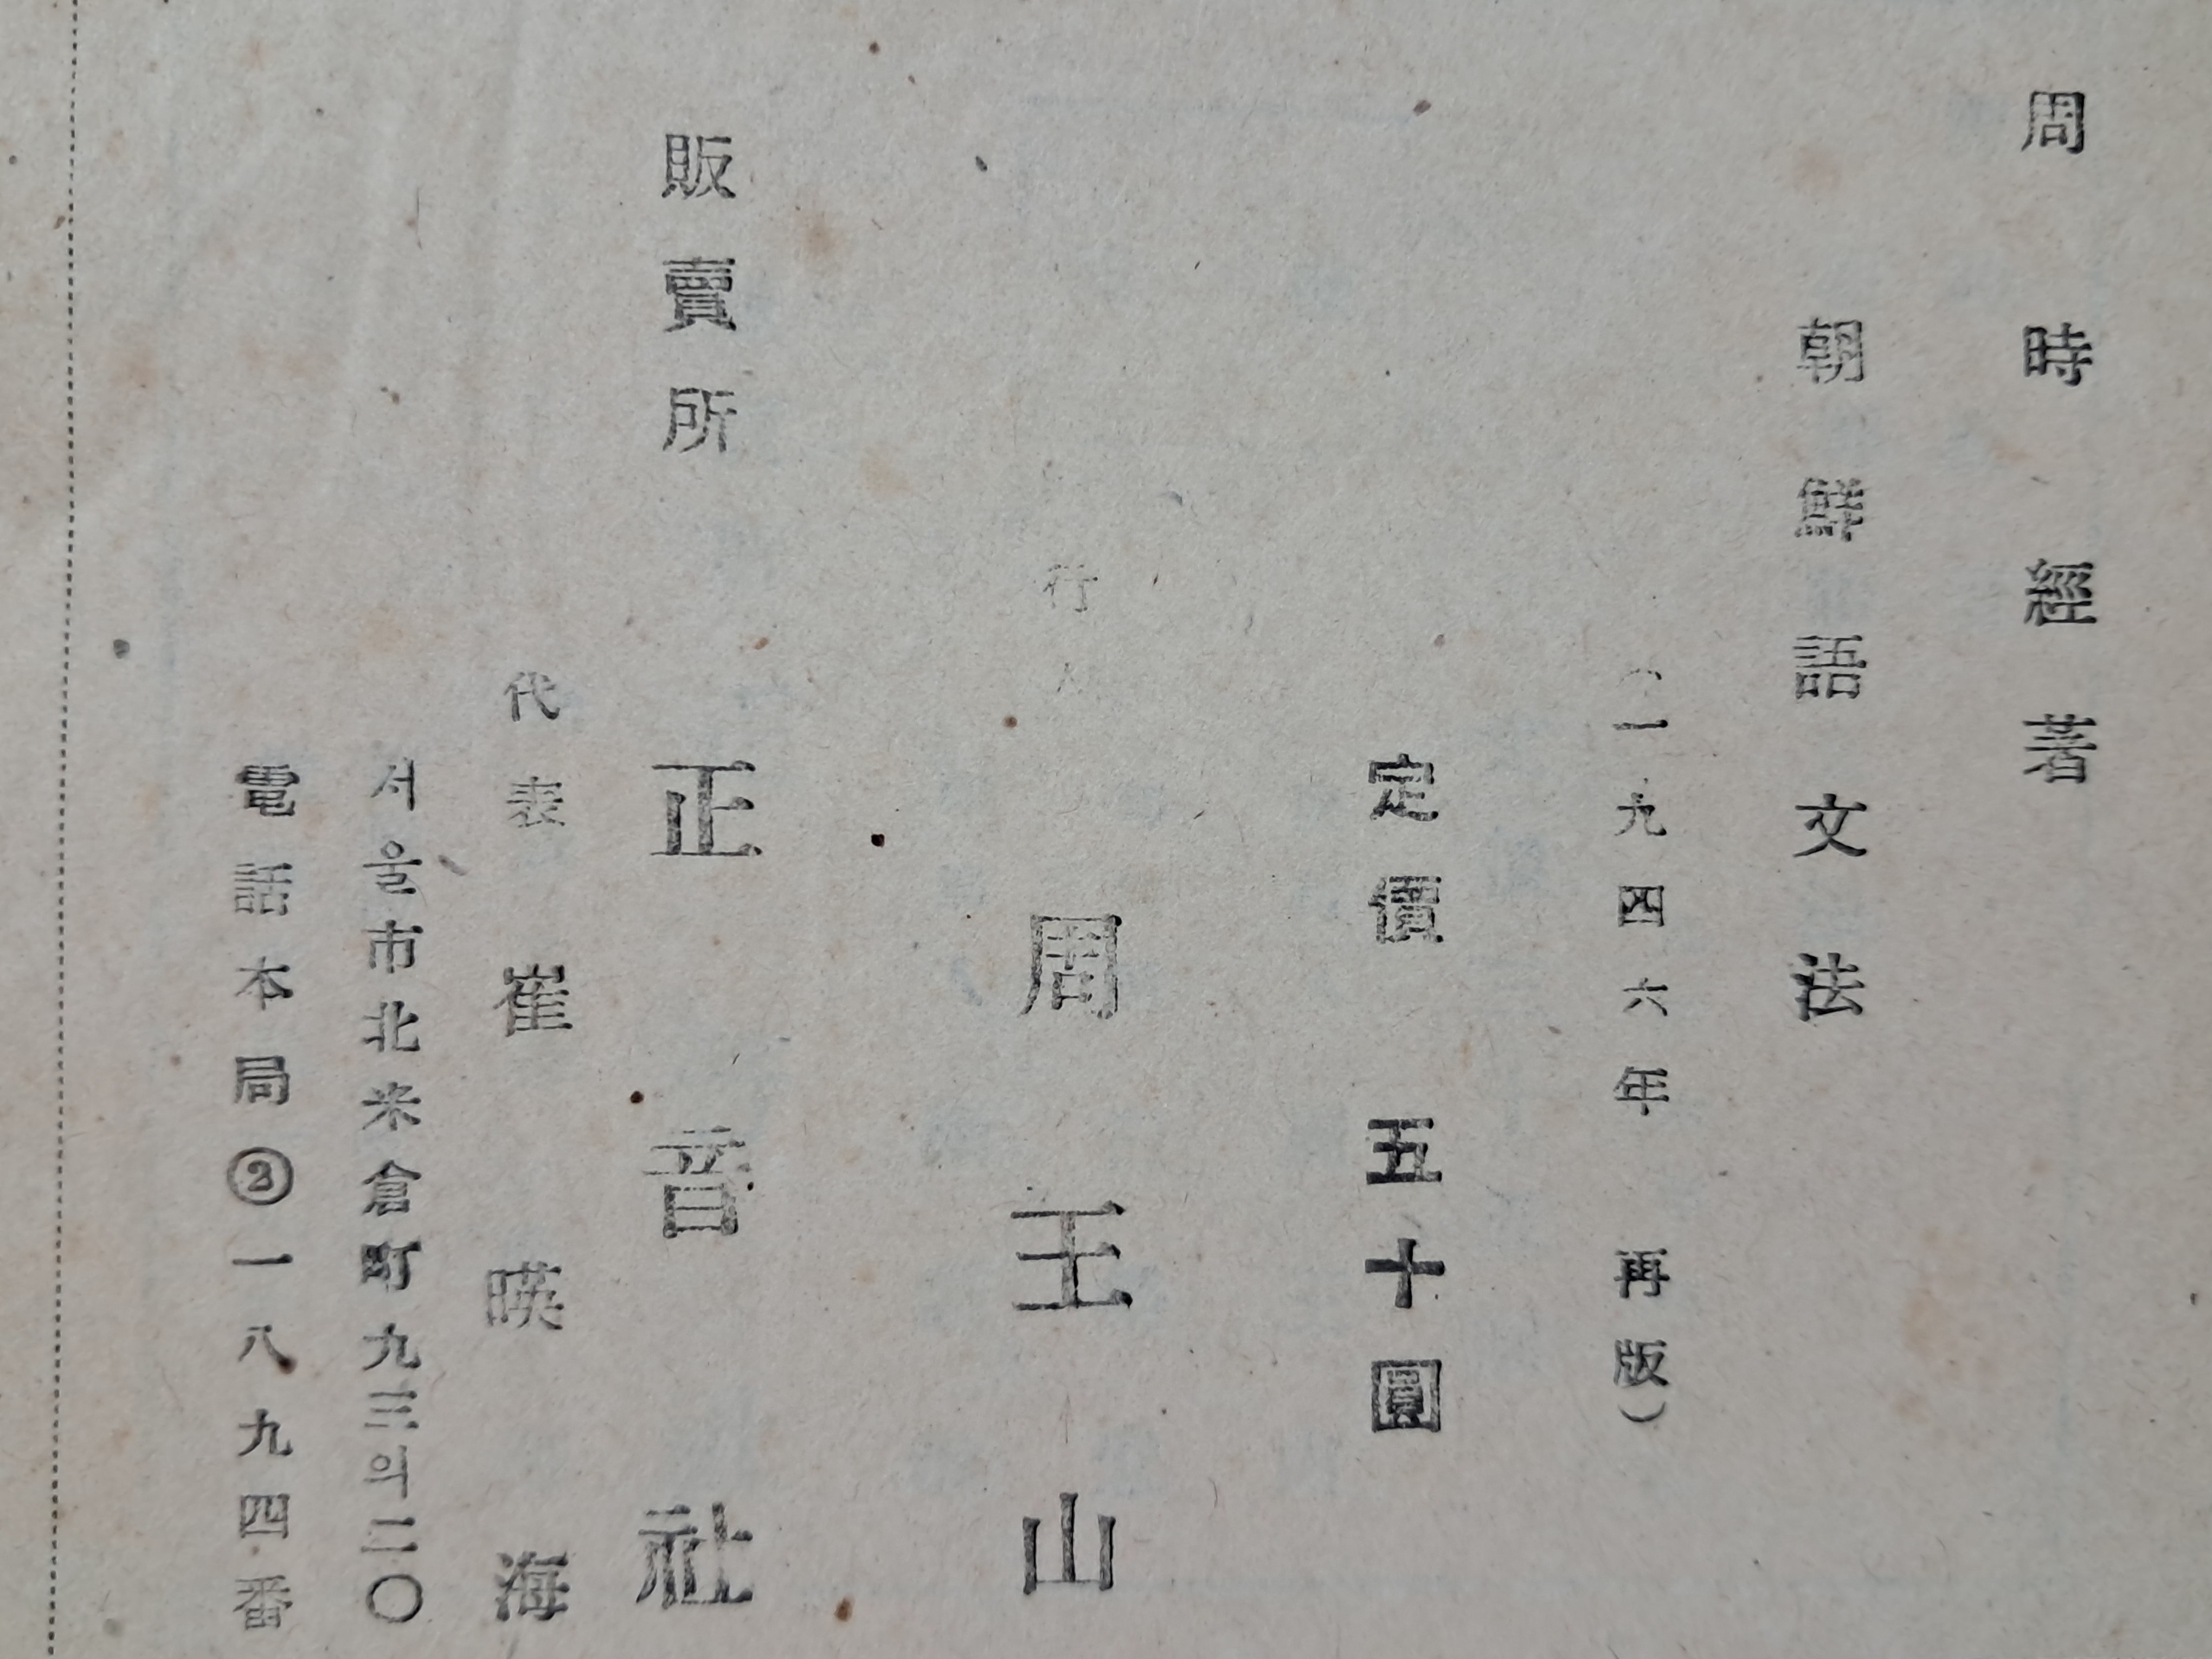 周時經著
朝鮮語文法
(一九四六年 再版)
定價 五十圓
行人 周王山
販賣所 正音社
代表 崔暎海
서울市北米倉町九三의二〇
電話本局②一八九四番